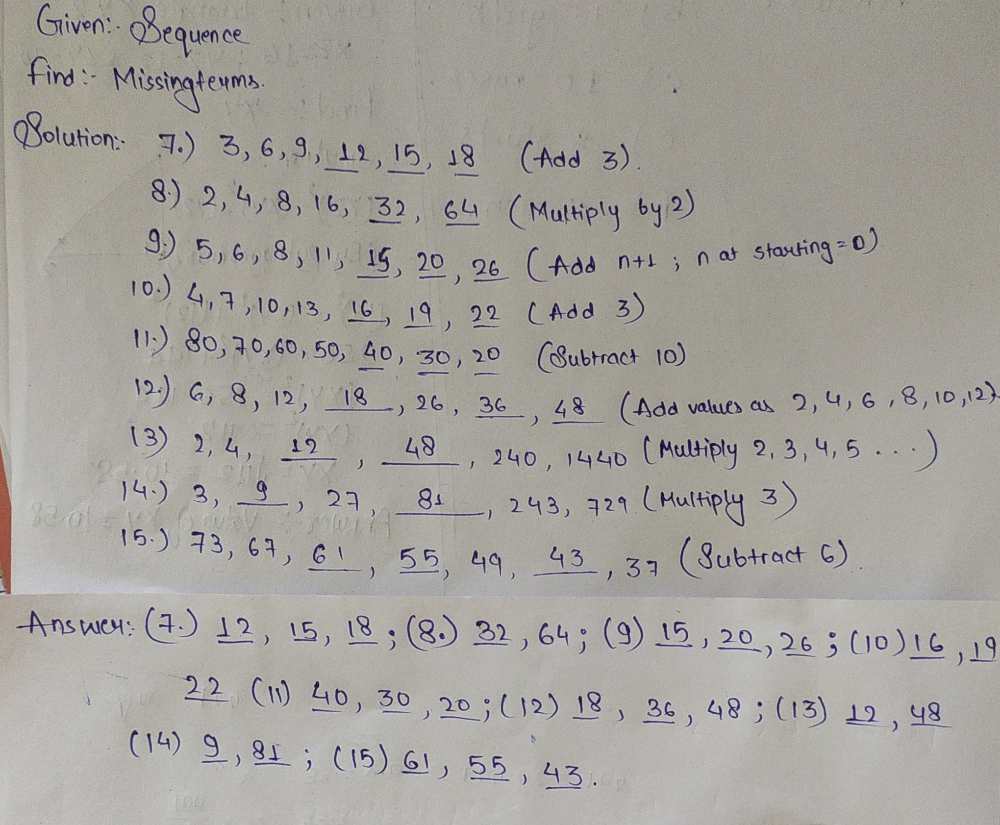 Given:- Sequence
Find:- Missing terms.
Solution:- 7.) 3, 6, 9, 12, 15, 18 (Add 3).
8.) 2, 4, 8, 16, 32, 64 (Multiply by 2)
9.) 5, 6, 8, 11, 15, 20, 26 (Add n+1 ; n at starting = 0)
10.) 4, 7, 10, 13, 16, 19, 22 (Add 3)
11.) 80, 70, 60, 50, 40, 30, 20 (Subtract 10)
12.) 6, 8, 12, 18, 26, 36, 48 (Add values as 2, 4, 6, 8, 10, 12)
13) 2, 4, 12, 48, 240, 1440 (Multiply 2, 3, 4, 5 ...)
14.) 3, 9, 27, 81, 243, 729 (Multiply 3)
15.) 73, 67, 61, 55, 49, 43, 37 (Subtract 6).
Answer: (7.) 12, 15, 18 ; (8.) 32, 64 ; (9) 15, 20, 26 ; (10) 16, 19
22 (11) 40, 30, 20 ; (12) 18, 36, 48 ; (13) 12, 48
(14) 9, 81 ; (15) 61, 55, 43.